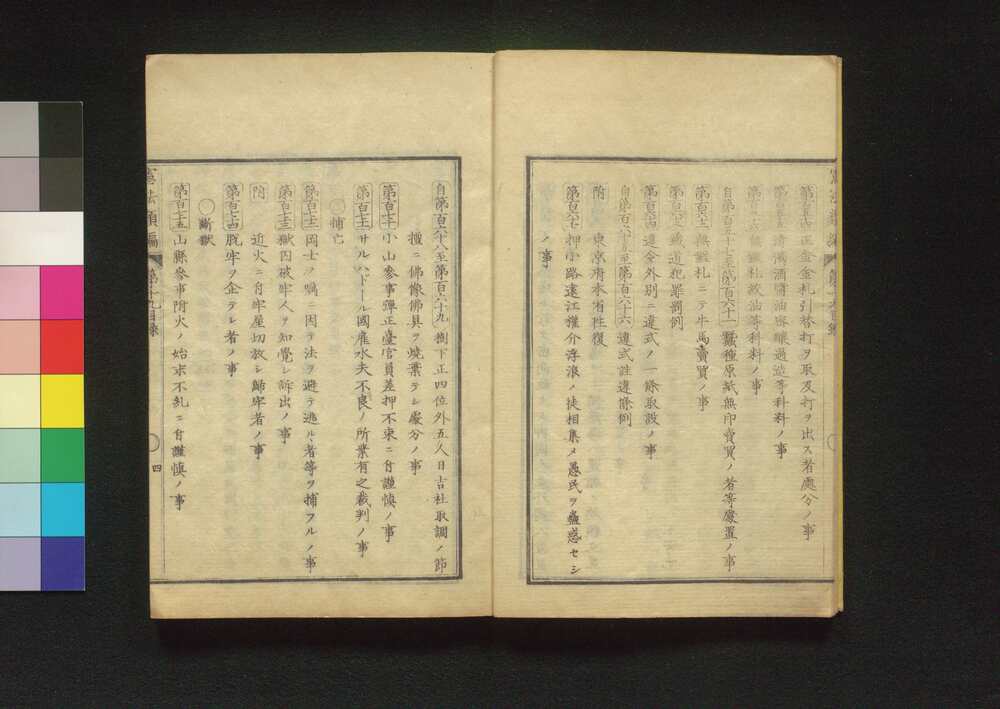 正金金札引替打ヲ取及打ヲ出ス者處分ノ事
清濁酒醤油 過造等科料ノ事
鑑札 絞油等科料ノ事
自第百五十 至第百六十一 蠶種原紙無印賣買ノ者等處置ノ事
無鑑札ニテ牛馬賣買ノ事
鐵道犯罪罰例
第百六十四 違令外別ニ違式ノ一條取設ノ事
自第百六十五至第百六十六 違式詿違條例
附 東京府本府往復
第百六十七 押小路遠江權介浮浪ノ徒相集メ愚民ヲ蠱惑セシ
ノ事
自第百六十八至第百六十九 樹下正四位外五人日吉社取調ノ節
擅ニ佛像佛具ヲ燒棄テシ處分ノ事
第百七十 小山參事彈正臺官員差押不束ニ付謹愼ノ事
第百七十一 サルハドール國雇水夫不良ノ所業有之裁判ノ事
○捕亡
第百七十二 岡士ノ囑ニ因テ法ヲ避テ逃ル者等ヲ捕フルノ事
第百七十三 獄囚破牢人ヲ知覺シ訴出ノ事
附 近火ニ付牢屋切放シ歸牢者ノ事
第百七十四 脱牢ヲ企テシ者ノ事
○斷獄
第百七十五 山縣參事附火ノ始末不糺ニ付謹愼ノ事
憲法類編 第十九目録 四